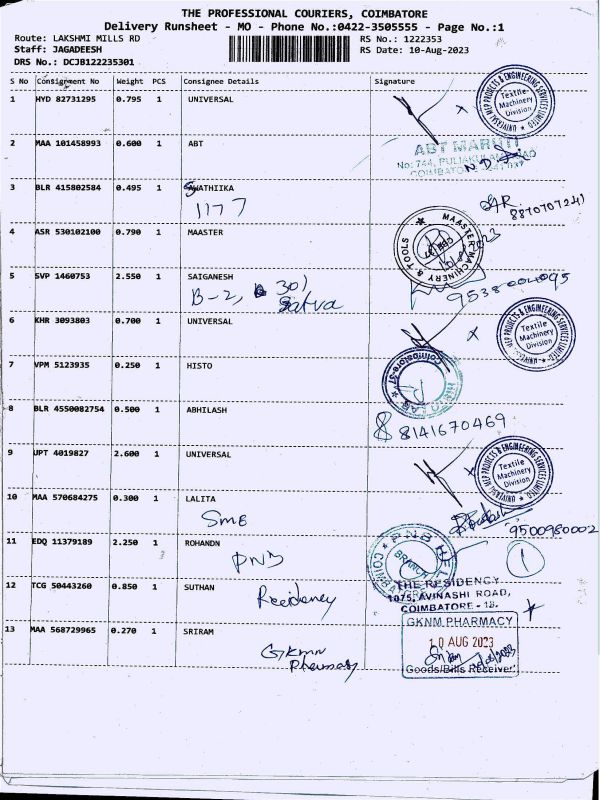 THE PROFESSIONAL COURIERS, COIMBATORE
Delivery Runsheet - MO - Phone No.:0422-3505555 - Page No.:1
Route: LAKSHMI MILLS RD
RS No.: 1222353
Staff: JAGADEESH
RS Date: 10-Aug-2023
DRS No.: DCJB122235301
S No Consignment No Weight PCS Consignee Details Signature
1 HYD 82731295 0.795 1 UNIVERSAL
UNIVERSAL MEP PROJECTS & ENGINEERING SERVICES LIMITED
Textile
Machinery
Division
2 MAA 101458993 0.600 1 ABT
ABT MARUTI
No: 744, PULIAKULAM ROAD
3 BLR 415802584 0.495 1 SWATHIIKA
1177
8870707241
4 ASR 530102100 0.790 1 MAASTER
MAASTER MACHINERY & TOOLS
5 SVP 1460753 2.550 1 SAIGANESH
B-2, 301
Satva
9538004095
6 KHR 3093803 0.700 1 UNIVERSAL
UNIVERSAL MEP PROJECTS & ENGINEERING SERVICES LIMITED
Textile
Machinery
Division
7 VPM 5123935 0.250 1 HISTO
Coimbatore-37
HISTO LAB
8 BLR 4550082754 0.500 1 ABHILASH
8141670469
9 JPT 4019827 2.600 1 UNIVERSAL
UNIVERSAL MEP PROJECTS & ENGINEERING SERVICES LIMITED
Textile
Machinery
Division
10 MAA 570684275 0.300 1 LALITA
SMB
9500980002
11 EDQ 11379189 2.250 1 ROHANDN
PNB
BRANCH
1
12 TCG 50443260 0.850 1 SUTHAN
Residency
THE RESIDENCY
1075, AVINASHI ROAD,
COIMBATORE - 18.
13 MAA 568729965 0.270 1 SRIRAM
GKMN
Pharmacy
GKNM PHARMACY
10 AUG 2023
Goods/Bills Receiver